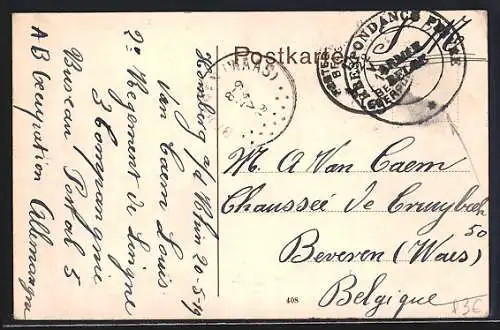 Postkarte
CORRESPONDANCE PRIVÉE
ARMÉE
BELGE
(WAAS)
Homberg a/d Rhin 20-5-19
Van Caem Louis
2e Regement de Ligne
3 Compangnie
Bureau Postal 5
AB Ocupation Allemagne
M. A Van Caem
Chaussée de Cruybeck
50
Beveren (Waes)
Belgique
408